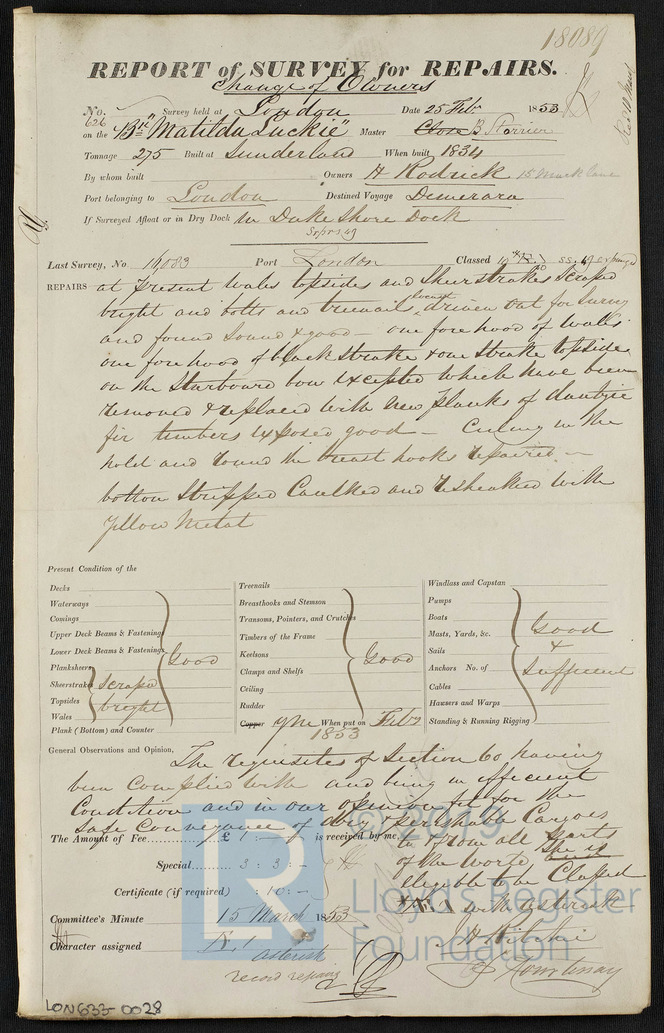 18089
REPORT of SURVEY for REPAIRS.
Change of Owners
No. 626 Survey held at London Date 25 Feb 1853
on the "Matilda Luckie" Master B Storrier
Tonnage 275 Built at Sunderland When built 1834
By whom built Owners H Rodrick 15 Mark lane
Port belonging to London Destined Voyage Demerara
If Surveyed Afloat or in Dry Dock in Duke Shore Dock
Last Survey, No 16083 Port London Classed
REPAIRS at present Wales topsides and Sheerstrakes Scraped
bright and bolts and treenails driven out for Survey
and found Sound & good — one fore hood of Wales
one fore hood of black strake & one strake topside
on the Starboard bow excepted which have been
removed & replaced with New planks of dantzic
fir timbers exposed good — Ceiling in the
hold and round the breast hooks repaired
bottom Stripped Caulked and resheathed with
Yellow Metal
Present Condition of the
Decks
Waterways
Comings
Upper Deck Beams & Fastening
Lower Deck Beams & Fastenings
Planksheers
Good
Sheerstrakes
Topsides
Wales
scraped
bright
Plank (Bottom) and Counter
Treenails
Breasthooks and Stemson
Transoms, Pointers, and Crutches
Timbers of the Frame
Keelsons
Clamps and Shelfs
Ceiling
Rudder
Good
Copper YM When put on Feby
1853
Windlass and Capstan
Pumps
Boats
Masts, Yards, &c.
Sails
Anchors No. of
Cables
Hawsers and Warps
Standing & Running Rigging
Good
&
Sufficient
General Observations and Opinion,
The requisites of Section 60 having
been Complied with and being in efficient
Condition and in our opinion fit for the
Safe Conveyance of dry & perishable Cargoes
to & from all parts
of the World She is
eligible to be Classed
with asterisk
The Amount of Fee £ 1 : — is received by me,
Special 3 : 3 : —
Certificate (if required) : 10 : —
Committee's Minute 15 March 1853
Character assigned
asterisk
record repairs
Courtenay
LON633-0028
© 2019
LR
Lloyd's Register
Foundation